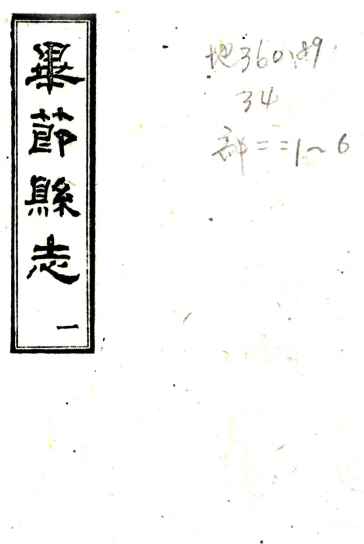 畢節縣志
一
地360.89
34
部二=1~6